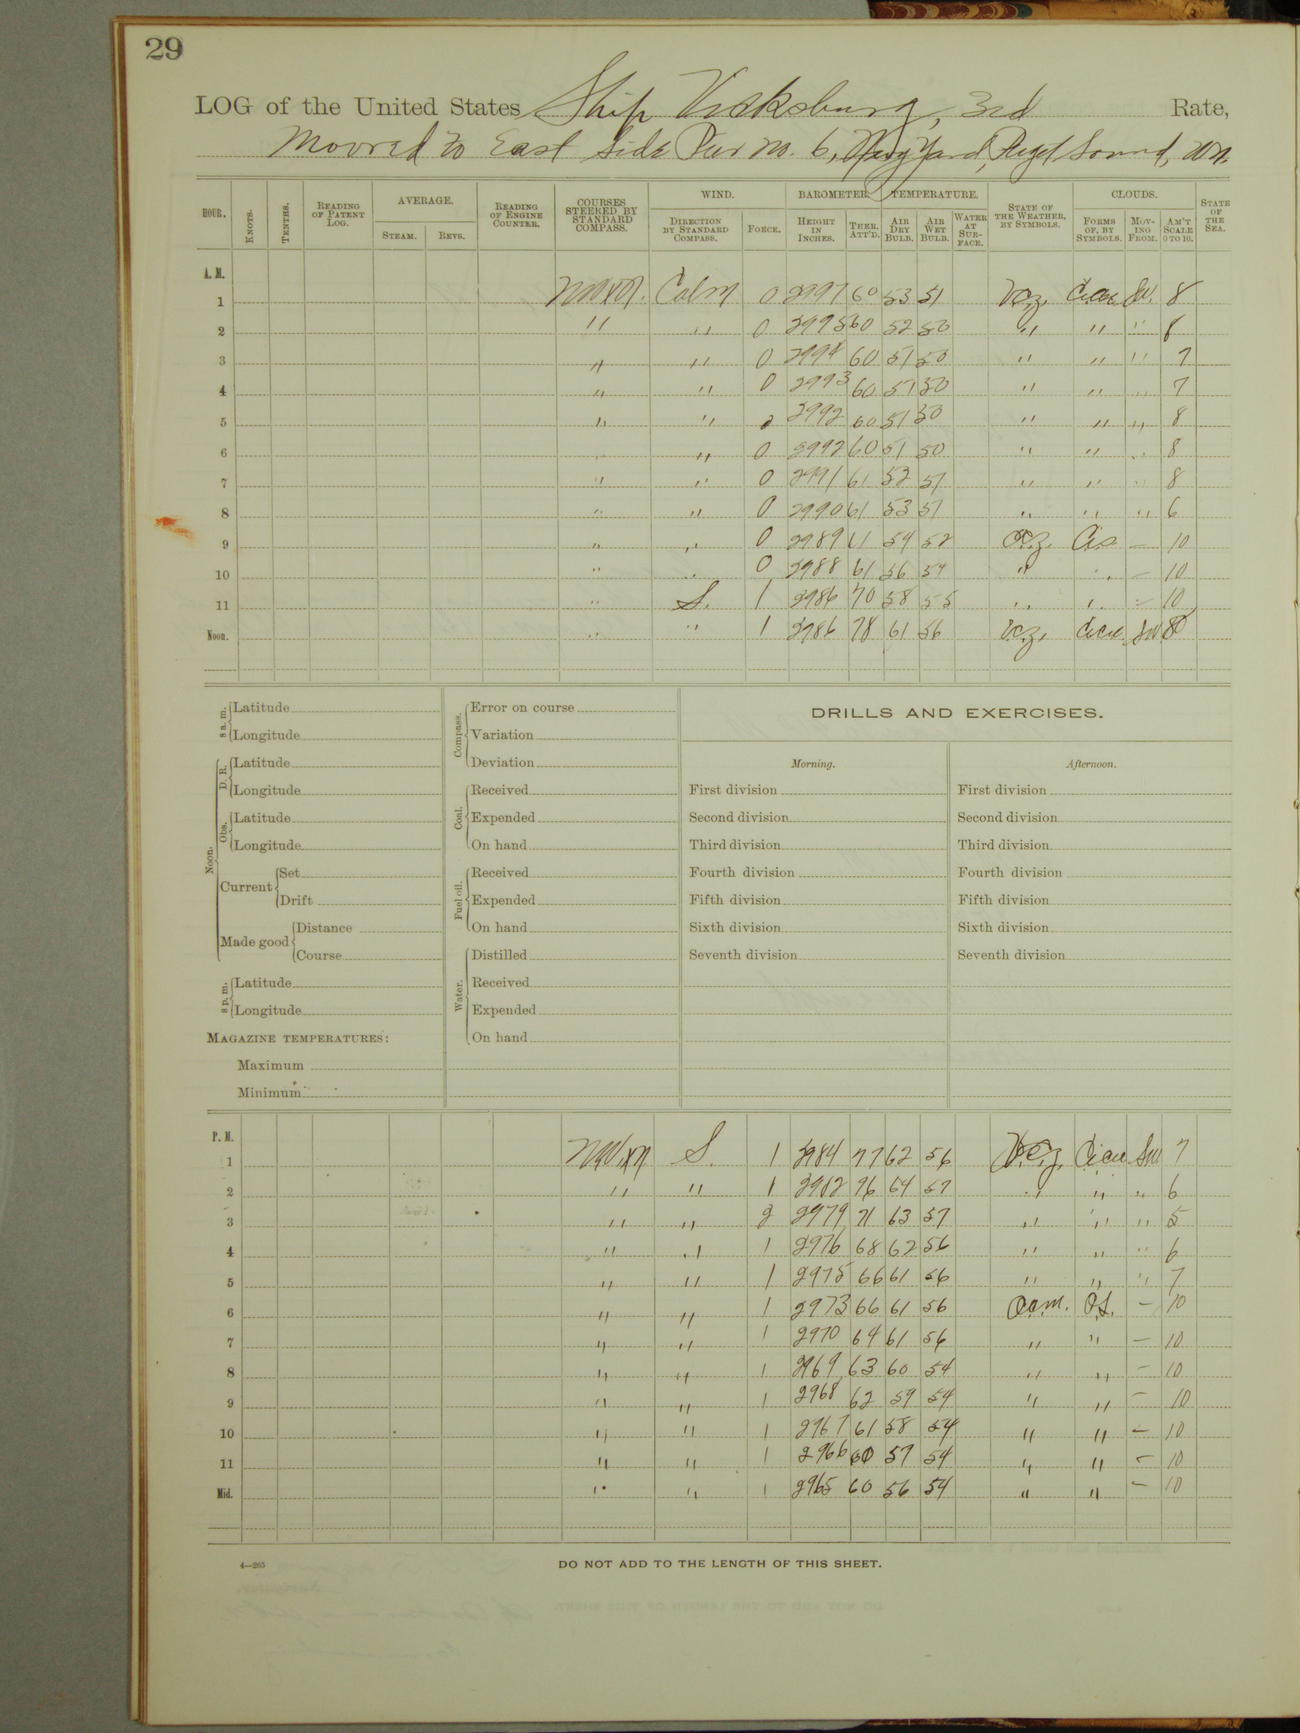 29
LOG of the United States Ship Vicksburg, 3rd Rate,
Moored to East Side Pier no. 6, Navy Yard, Puget Sound, Wn.
HOUR. KNOTS. TENTHS. READING OF PATENT LOG. AVERAGE. STEAM. REVS. READING OF ENGINE COUNTER. COURSES STEERED BY STANDARD COMPASS. WIND. DIRECTION BY STANDARD COMPASS. FORCE. BAROMETER. HEIGHT IN INCHES. THER. ATT'D. TEMPERATURE. AIR DRY BULB. AIR WET BULB. WATER AT SURFACE. STATE OF THE WEATHER, BY SYMBOLS. CLOUDS. FORMS OF, BY SYMBOLS. MOVING FROM. AM'T SCALE 0 TO 10. STATE OF THE SEA.
A. M.
1 Calm 0 2997 60 53 51 b.c.z. Ci.cu. SW. 8
2 " " 0 2995 60 52 50 " " " 8
3 " " 0 2994 60 51 50 " " " 7
4 " " 0 2993 60 51 50 " " " 7
5 " " 0 2992 60 51 50 " " " 8
6 " " 0 2992 60 51 50 " " " 8
7 " " 0 2991 61 52 51 " " " 8
8 " " 0 2990 61 53 51 " " " 6
9 " " 0 2989 61 54 52 o.z. Ci.s. — 10
10 " " 0 2988 61 56 54 " " — 10
11 " S. 1 2986 70 58 55 " " — 10
Noon. " " 1 2986 78 61 56 b.c.z. Ci.cu. SW 8
8 a. m. Latitude
Longitude
Noon. D. R. Latitude
Longitude
Obs. Latitude
Longitude
Current Set
Drift
Made good Distance
Course
8 p. m. Latitude
Longitude
MAGAZINE TEMPERATURES:
Maximum
Minimum
Compass. Error on course
Variation
Deviation
Coal. Received
Expended
On hand
Fuel oil. Received
Expended
On hand
Water. Distilled
Received
Expended
On hand
DRILLS AND EXERCISES.
Morning. Afternoon.
First division First division
Second division Second division
Third division Third division
Fourth division Fourth division
Fifth division Fifth division
Sixth division Sixth division
Seventh division Seventh division
P. M.
1 S. 1 2984 77 62 56 b.c.z. Ci.cu SW 7
2 " " 1 2982 76 64 57 " " " 6
3 " " 2 2979 71 63 57 " " " 5
4 " " 1 2976 68 62 56 " " " 6
5 " " 1 2975 66 61 56 " " " 7
6 " " 1 2973 66 61 56 o.c.m. — 10
7 " " 1 2970 64 61 56 " " — 10
8 " " 1 2969 63 60 54 " " — 10
9 " " 1 2968 62 59 54 " " — 10
10 " " 1 2967 61 58 54 " " — 10
11 " " 1 2966 60 57 54 " " — 10
Mid. " " 1 2965 60 56 54 " " — 10
4—265
DO NOT ADD TO THE LENGTH OF THIS SHEET.